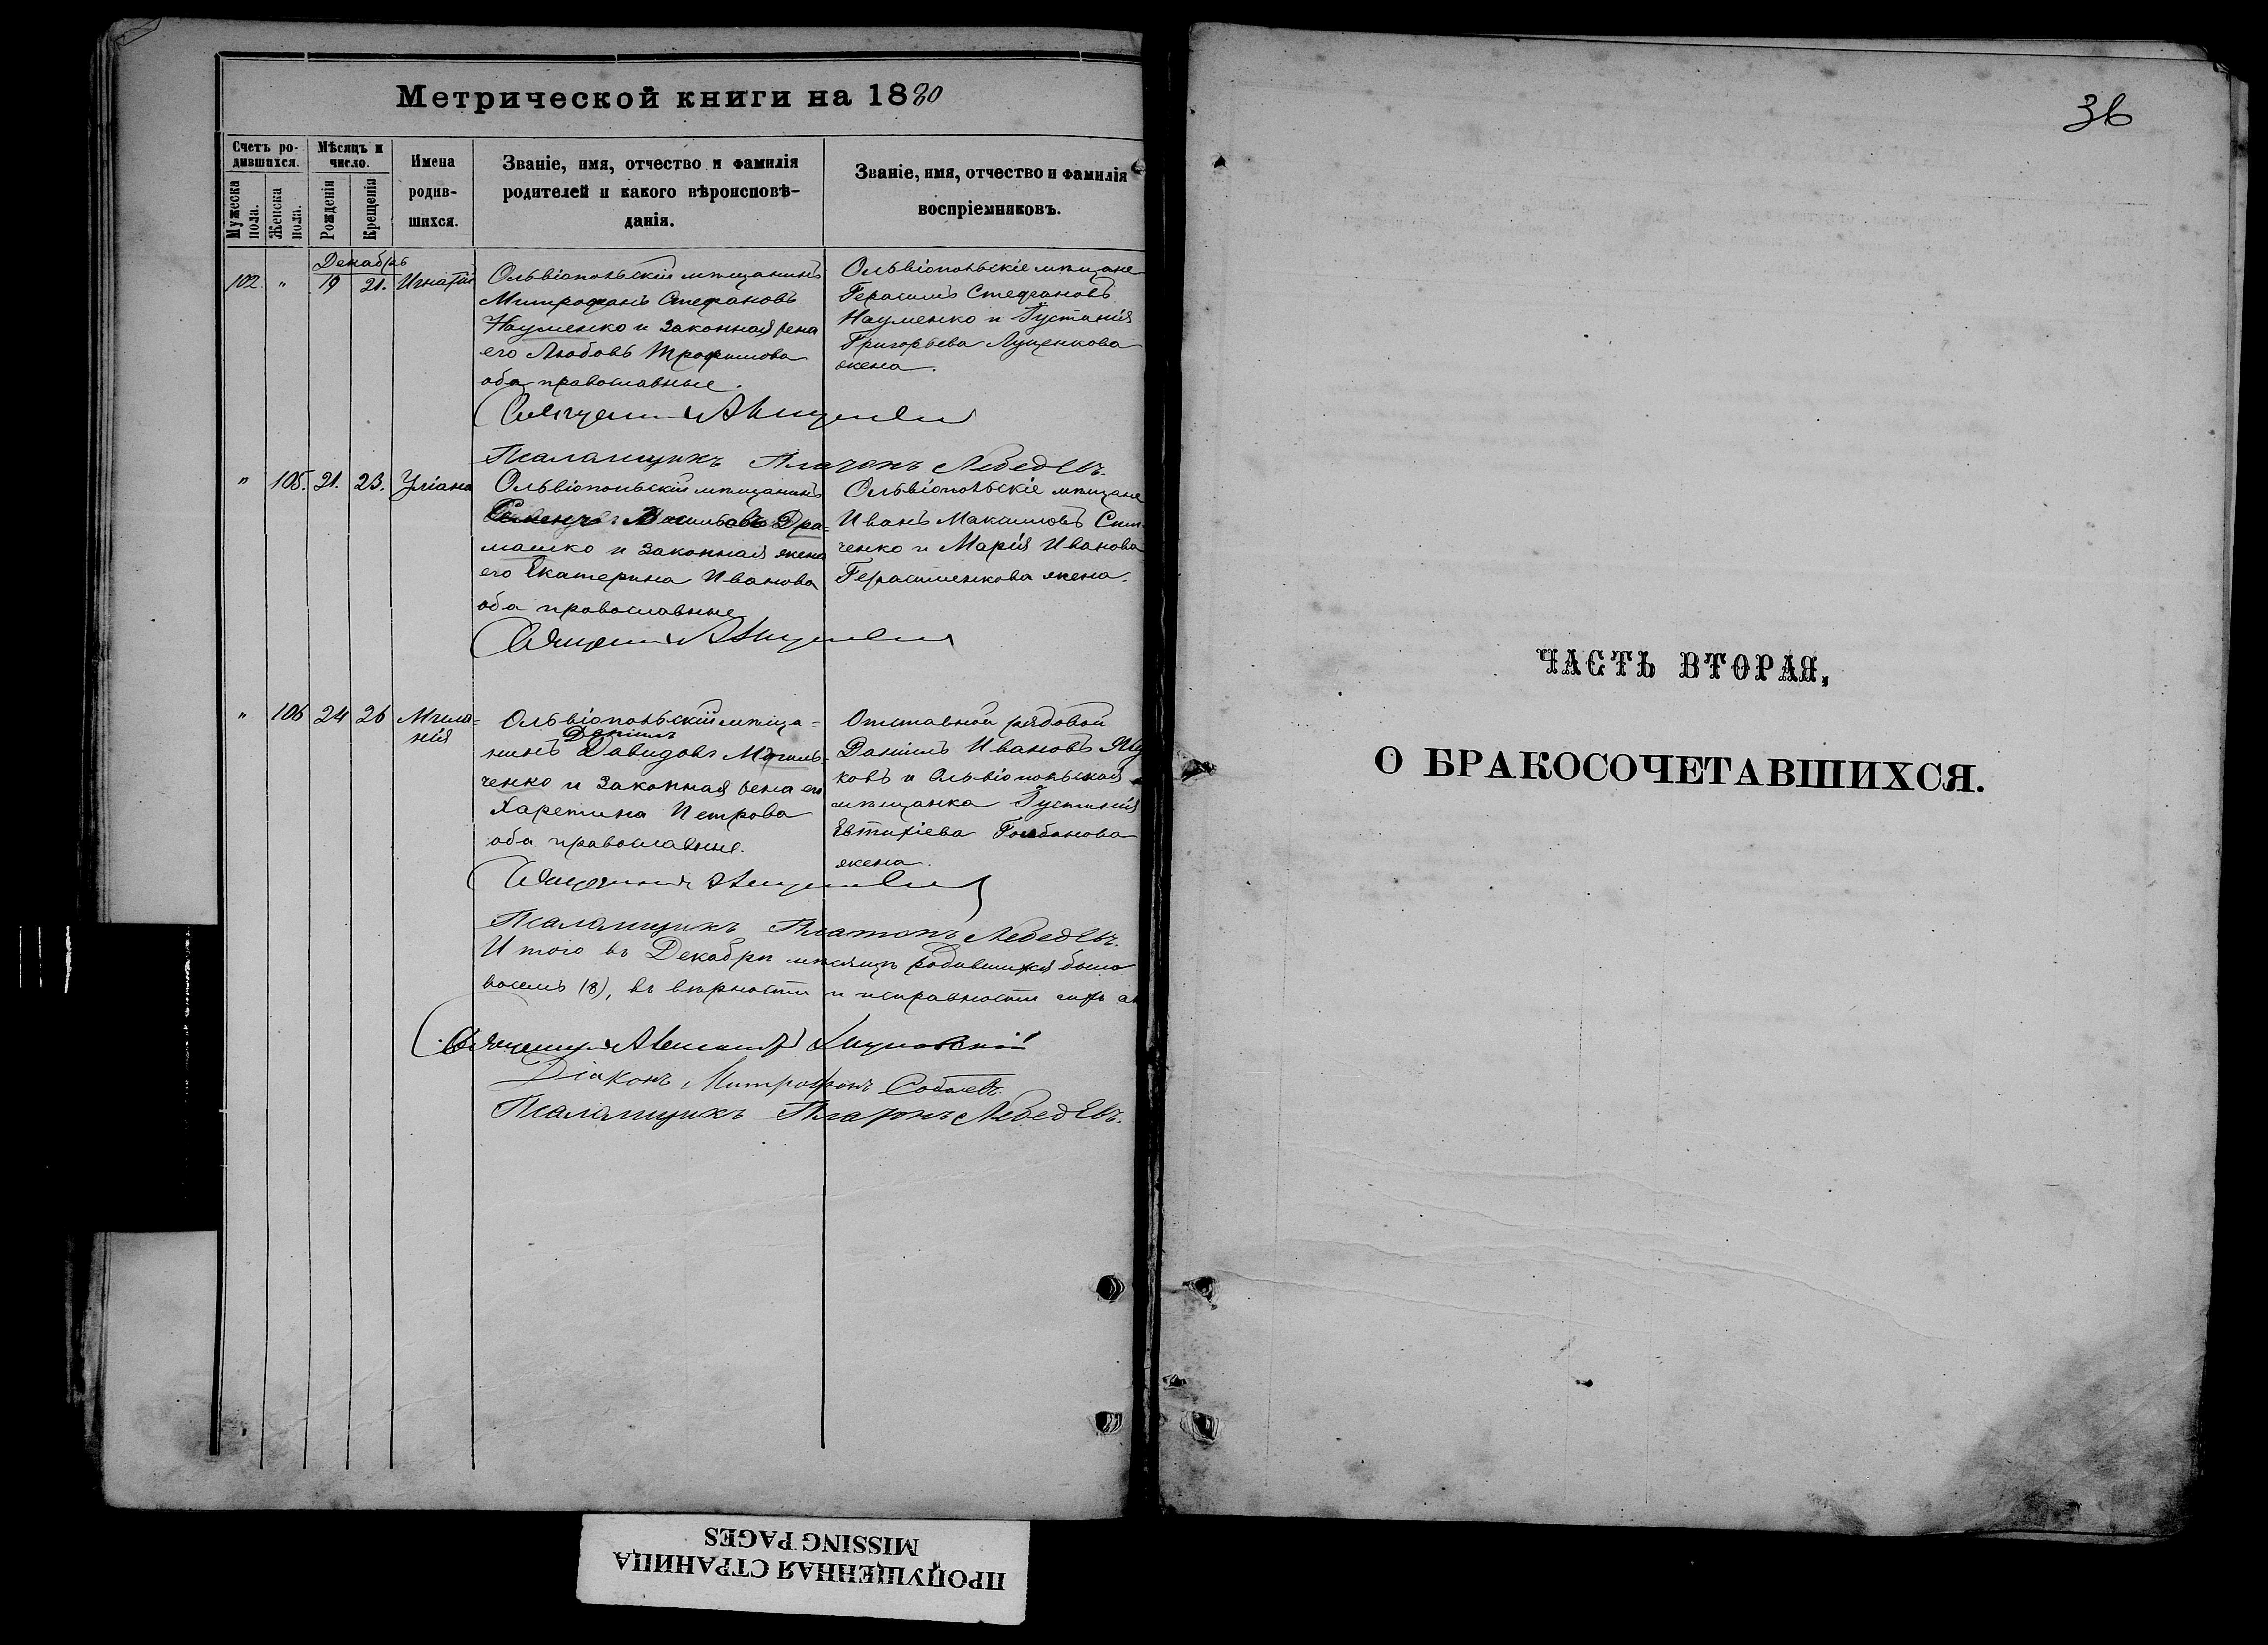 Метрической книги на 1880
Счетъ ро-
дившихся.
Мѣсяцъ и
число.
Имена
родив-
шихся.
Званіе, имя, отчество и фамилія
родителей и какого вѣроисповѣ-
данія.
Званіе, имя, отчество и фамилія
воспріемниковъ.
Мужеска пола.
Женска пола.
Рожденія
Крещенія
Декабрь
102. " 19 21. Игнатій
Ольвіопольскій мѣщанинъ
Митрофанъ Стефановъ
Науменко и законная жена
его Любовь Трофимова
оба православные.
Ольвіопольскіе мѣщане
Герасимъ Стефановъ
Науменко и Іустинія
Григорьева Луценкова
жена.
Священникъ
Псаломщикъ Платонъ Лебедевъ.
" 105. 21. 23. Уліана
Ольвіопольскій мѣщанинъ
Дра-
машко и законная жена
его Екатерина Иванова
оба православные
Ольвіопольскіе мѣщане
Иванъ Максимовъ
ченко и Марія Иванова
Герасименкова жена.
Священникъ
" 106 24 26 Мела-
нія
Ольвіопольскій мѣща-
Даніилъ
нинъ Давидовъ
ченко и законная жена его
Харетина Петрова
оба православные.
Отставной рядовой
Даніилъ Ивановъ
ковъ и Ольвіопольская
мѣщанка Іустинія
Евтихіева
жена.
Священникъ
Псаломщикъ Платонъ Лебедевъ.
Итого въ Декабрѣ мѣсяцѣ родившихся было
восемь (8), въ вѣрности и исправности сихъ
Священникъ
Діаконъ Митрофанъ
Псаломщикъ Платонъ Лебедевъ.
36
ЧАСТЬ ВТОРАЯ,
О БРАКОСОЧЕТАВШИХСЯ.
ПРОПУЩЕННАЯ СТРАНИЦА
MISSING PAGES